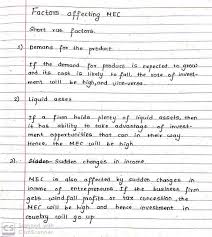 Factors affecting MEC
Short run factors.
1) Demand for the product
If the demand for product is expected to grow
and its cost is likely to fall, the rate of invest-
ment will be high, and vice-versa.
2) Liquid assets
If a firm holds plenty of liquid assets, then
it has ability to take advantage of invest-
ment opportunities that can in their way
Hence, the MEC will be high
3) Sudden changes in income.
MEC is also affected by sudden changes in
income of entrepreneurs If the business firm
gets windfall profits or tax concession, the
MEC will be high and hence investment in
country will go up
CS Scanned with
CamScanner